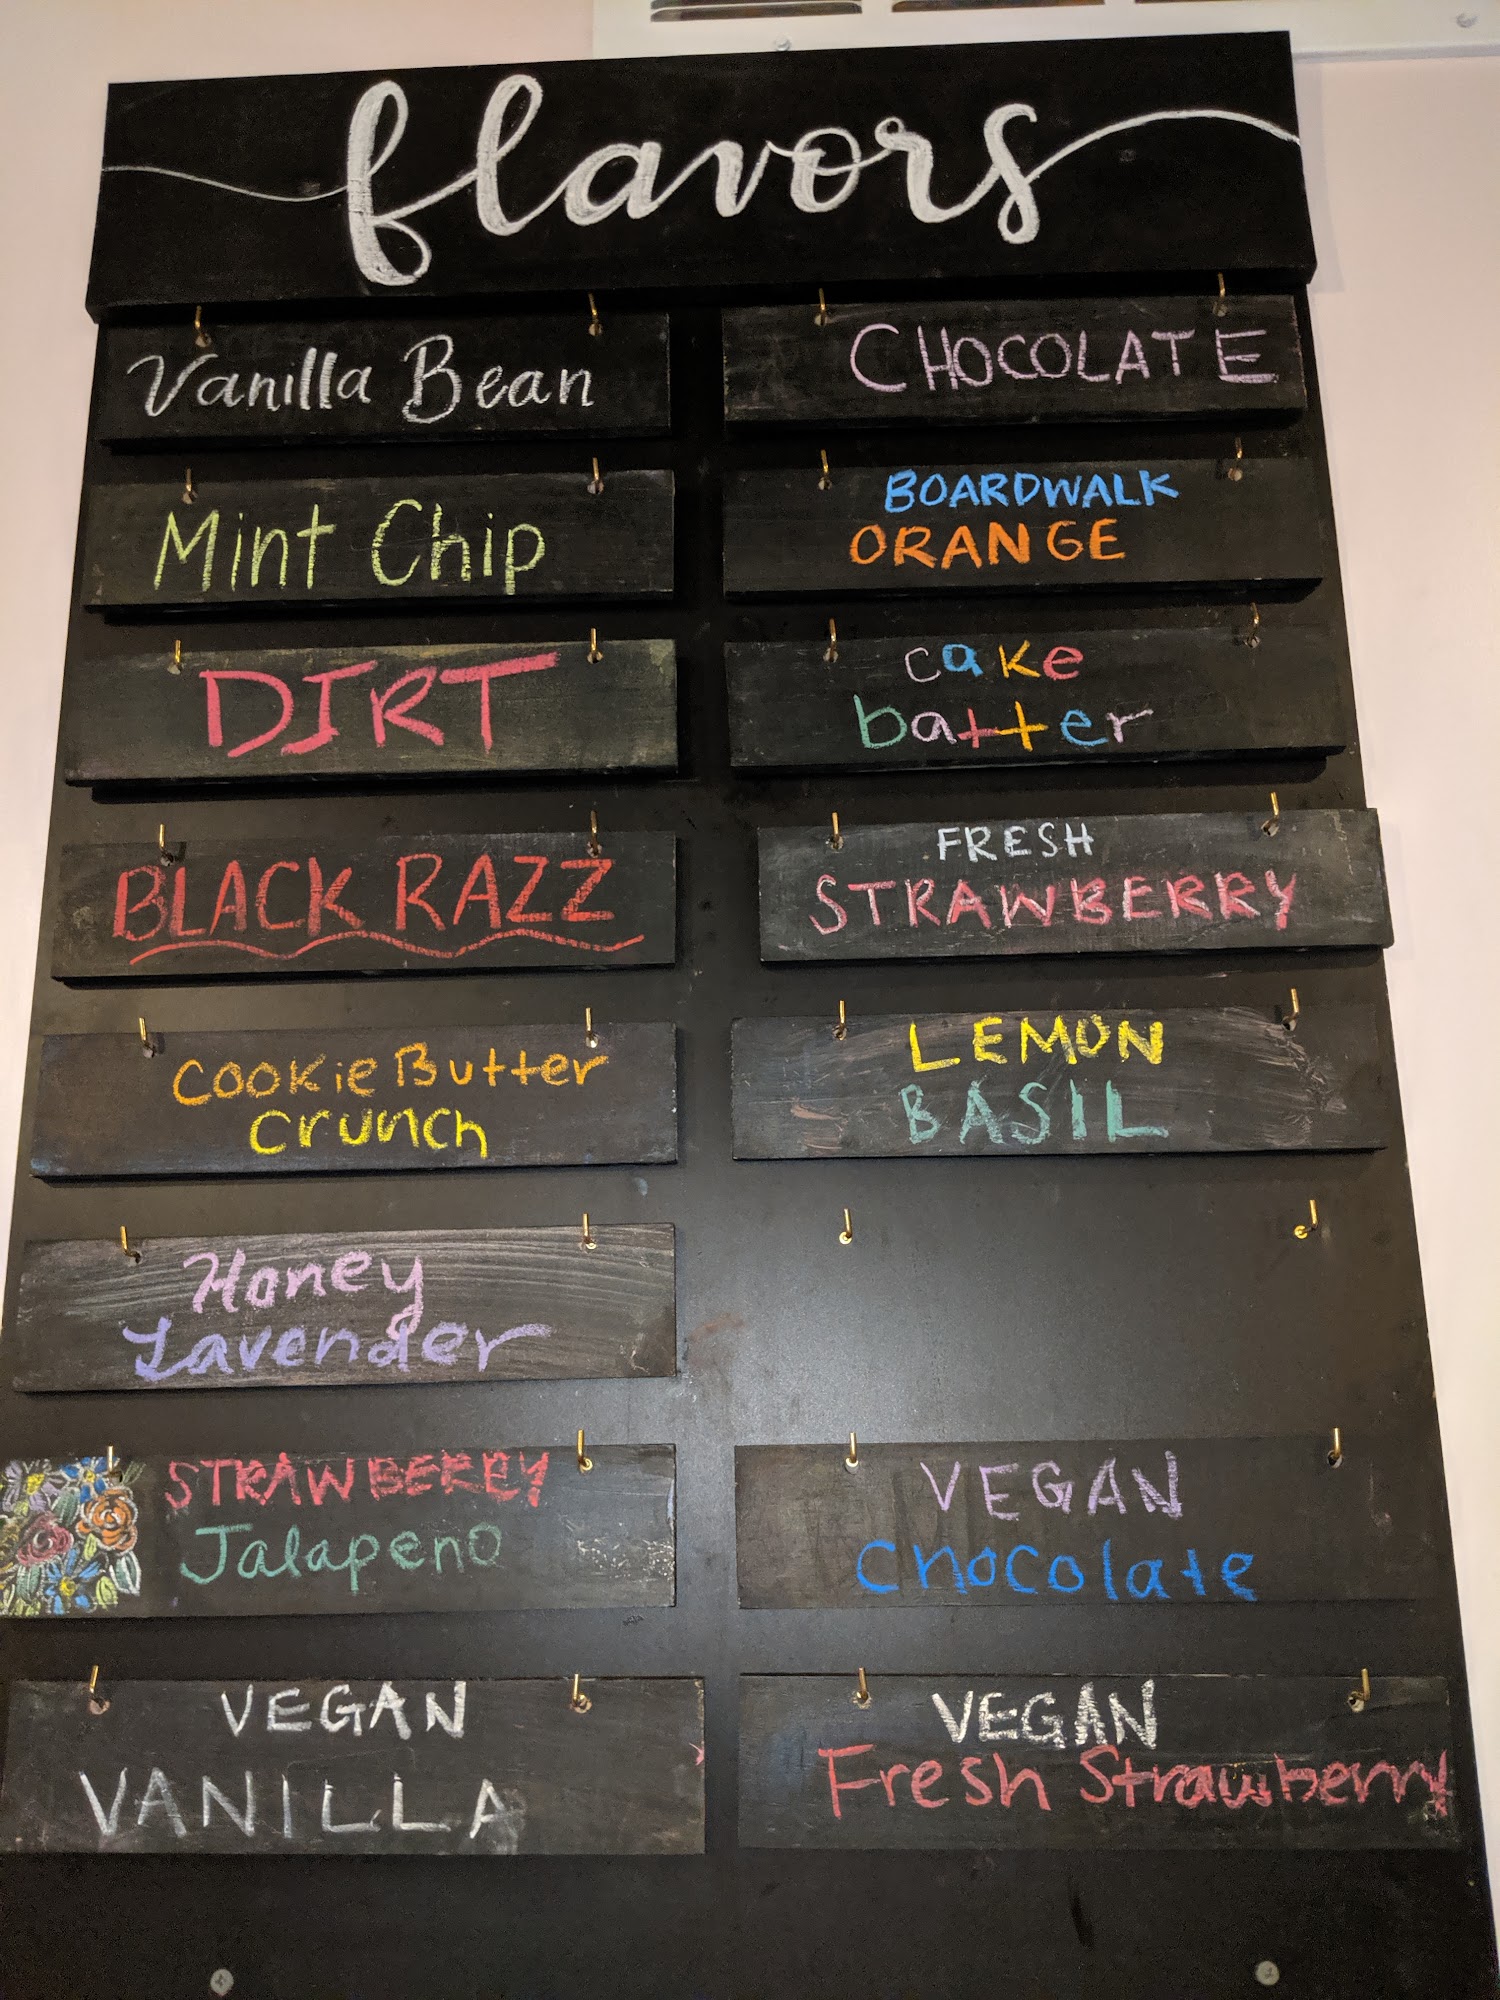 flavors
Vanilla Bean
CHOCOLATE
Mint Chip
BOARDWALK
ORANGE
DIRT
cake
batter
BLACK RAZZ
FRESH
STRAWBERRY
COOKie Butter
Crunch
LEMON
BASIL
Honey
Lavender
STRAWBERRY
Jalapeno
VEGAN
Chocolate
VEGAN
VANILLA
VEGAN
Fresh Strawberry